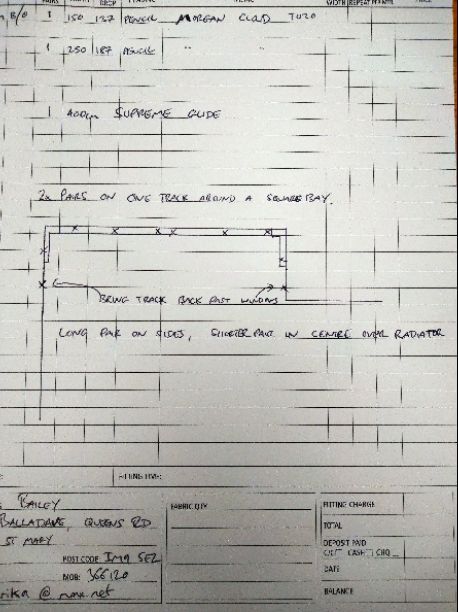 PAIRS WIDTH DROP HEADING WIDTH REPEAT PRINTS
B/O 1 150 137 PENCIL MORGAN CLOUD
1 250 187 PENCIL " "
1 400cm SUPREME GLIDE
2x PAIRS ON ONE TRACK AROUND A SQUARE BAY.
BRING TRACK BACK PAST WINDOWS
LONG PAIR ON SIDES, SHORTER PAIR IN CENTRE OVER RADIATOR
FITTING TIME:
BAILEY
BALLADAVE, QUEENS RD
ST MARY
POST CODE IM9 5EZ
MOB: 366120
rika @ manx.net
FABRIC QTY
FITTING CHARGE
TOTAL
DEPOSIT PAID
CASH CHQ
DATE
BALANCE